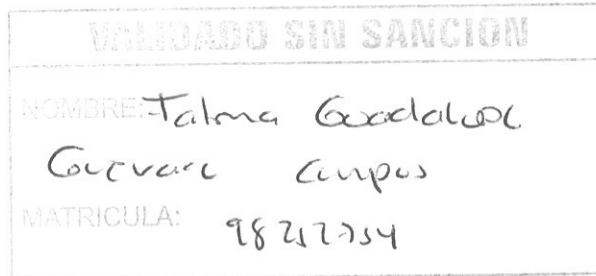 VALIDADO SIN SANCION
NOMBRE: Talma Guadalupe
Guevara Campos
MATRICULA: